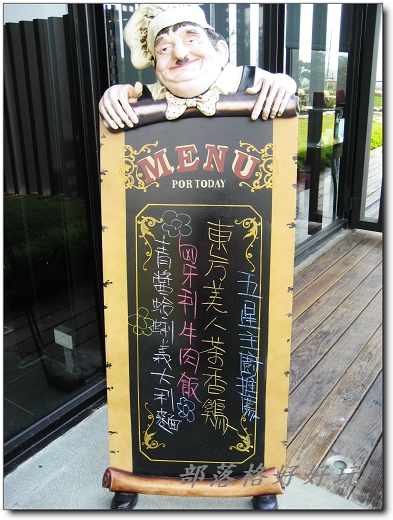 MENU
POR TODAY
五星主廚推薦
東方美人茶香鷄
匈牙利牛肉飯
青醬蛤蜊義大利麵
部落格好好玩